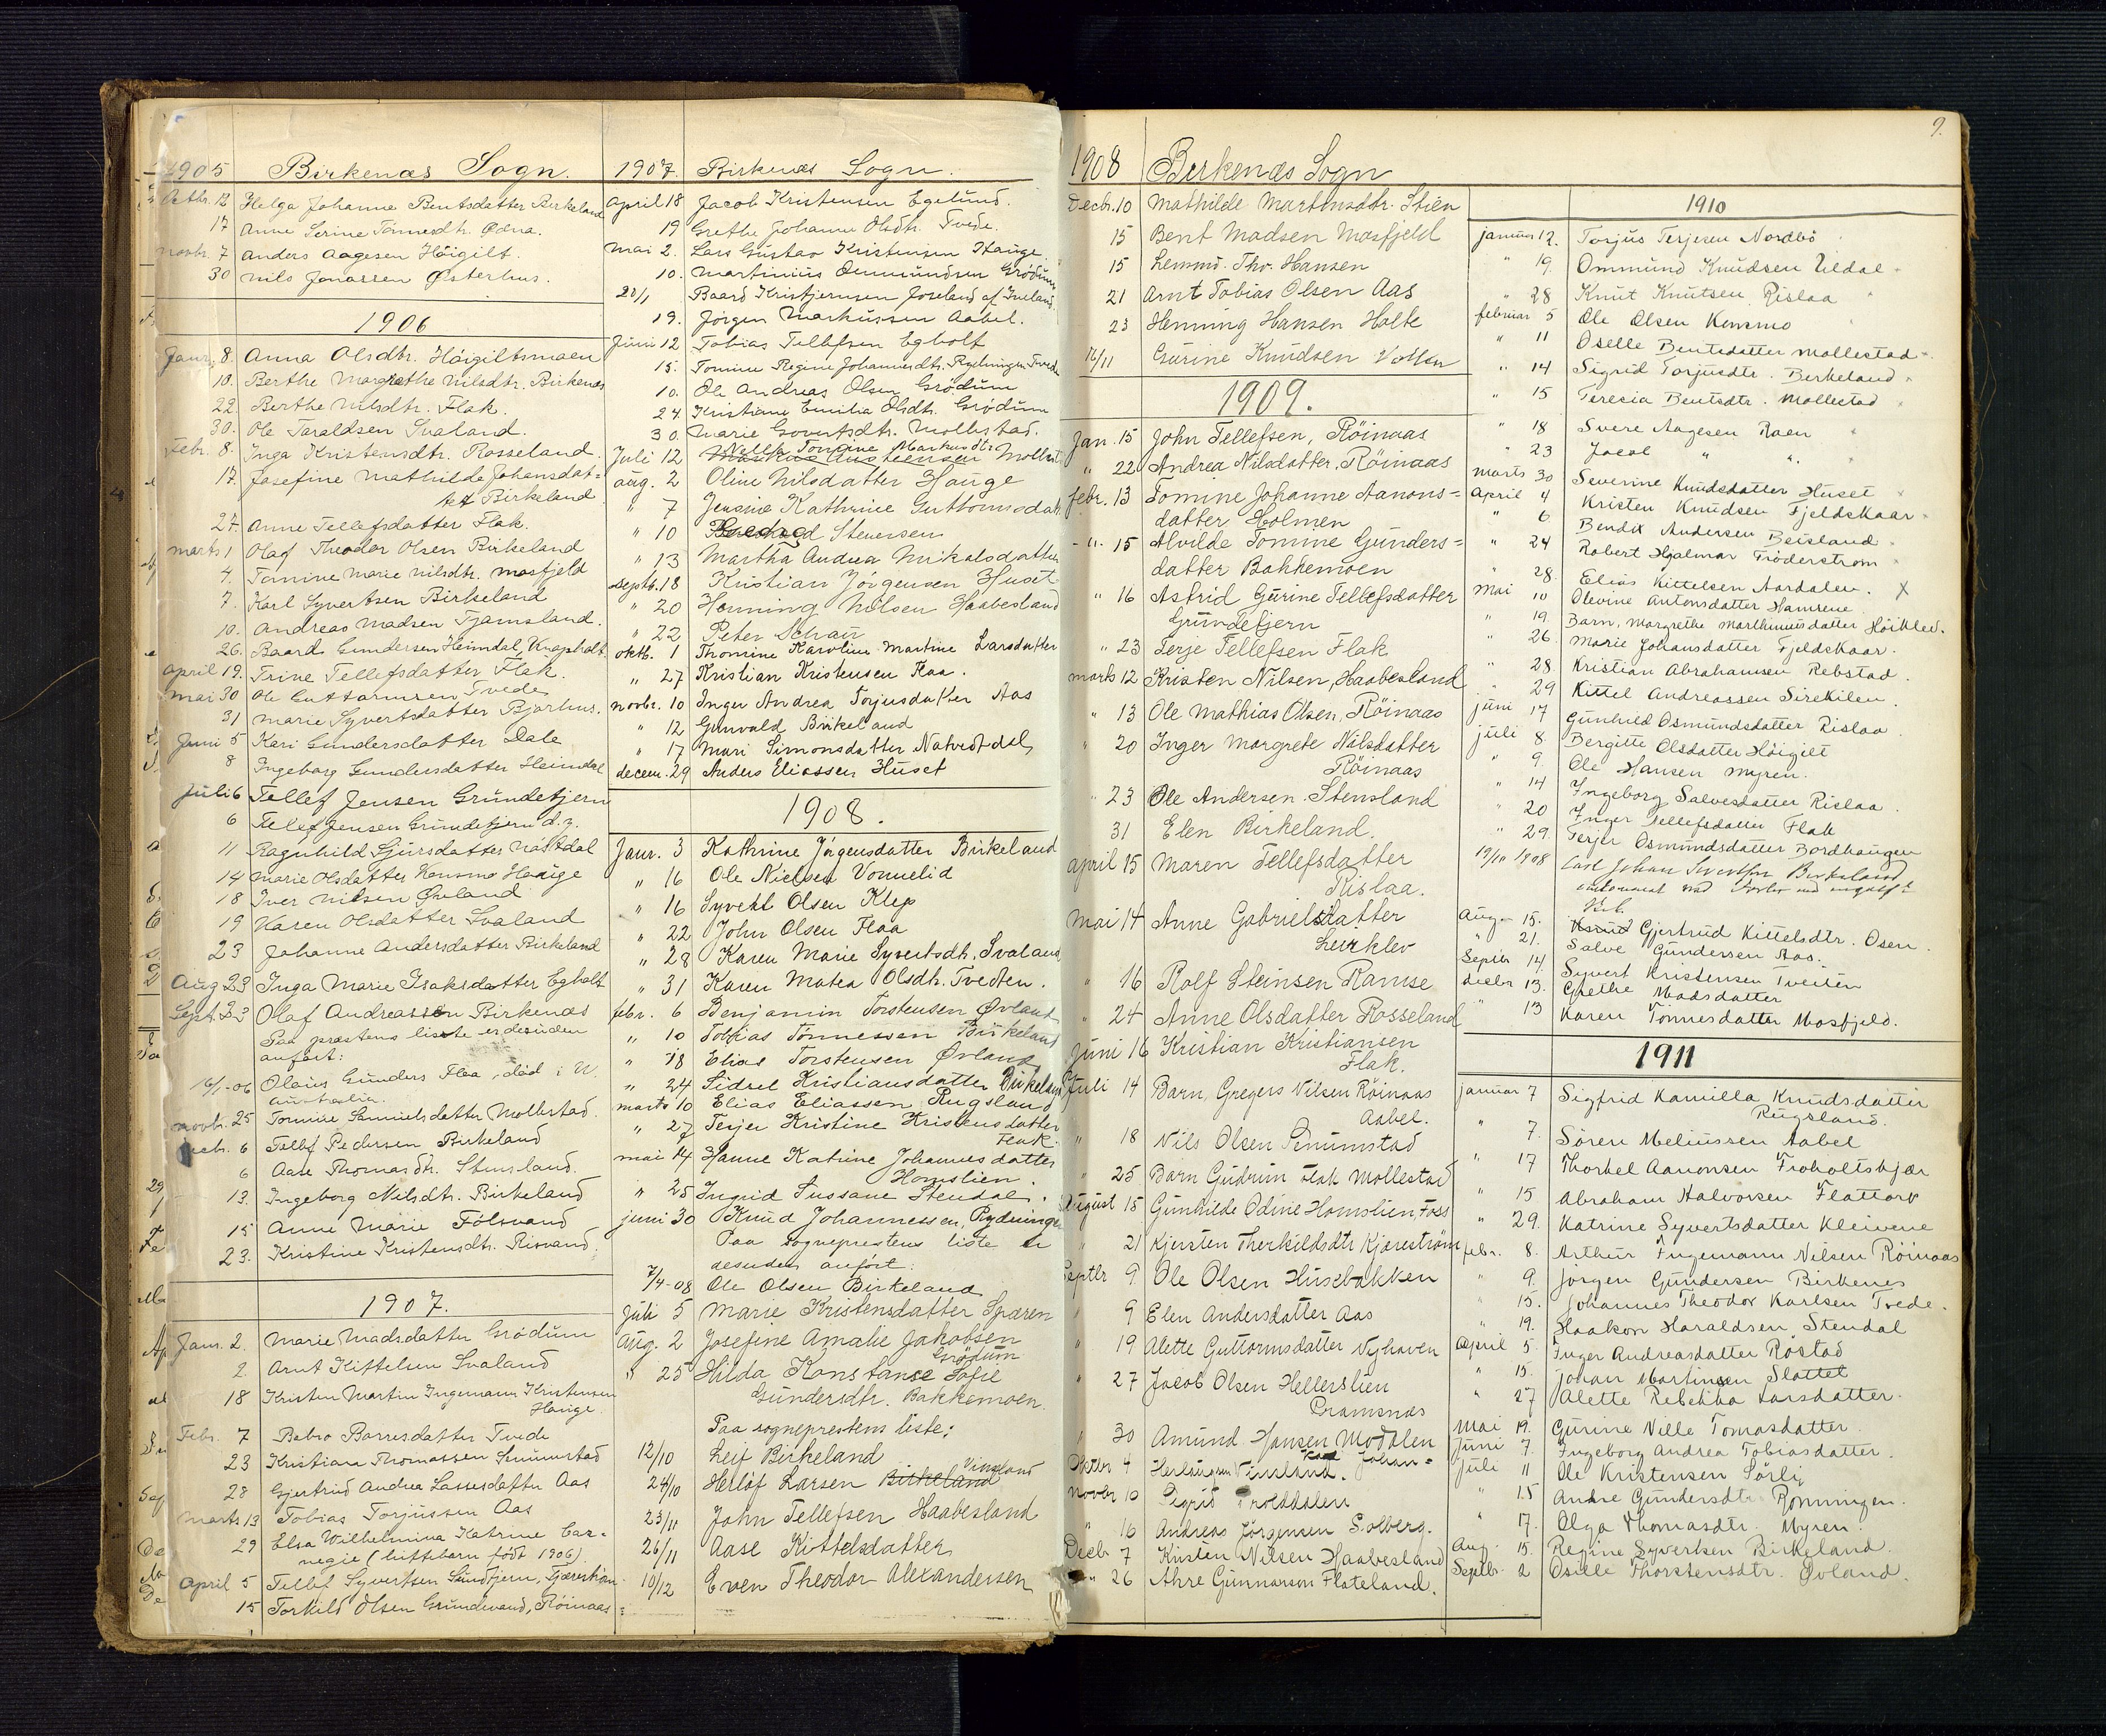 1905 Birkenæs Sogn.
Octbr. 12 Helga Johanne Bentsdatter Birkeland
17 Anne Serine Tönnesdtr. Ødna.
novbr. 7 Anders Aagesen Höigilt.
30 Nils Jonassen Østerhus.
1906
Janr. 8. Anna Olsdtr. Höigiltsmoen
10. Berthe Margrethe Nilsdtr. Birkenæs
22. Berthe Nilsdtr. Flak.
30. Ole Taraldsen Svaland.
Febr. 8. Inga Kristensdtr. Rosseland.
17. Josefine Mathilde Johansdat=
ter Birkeland
27. Anne Tellefsdatter Flak.
marts 1 Olaf Theodor Olsen Birkeland
4. Tomine Marie Nilsdtr. Mosfjeld
7. Karl Syvertsen Birkeland
10. Andreas Madsen Tjamsland.
26. Baard Gundersen Heimdal, Knapholt.
april 19. Trine Tellefsdatter Flak.
mai 30 Ole Guttormsen Tvede
31 Marie Syvertsdatter Bjorhus.
Juni 5 Kari Gundersdatter Dale
8 Ingeborg Gundersdatter Heimdal
Juli 6 Tellef Jensen Grundetjern
6 Tellef Jensen Grundetjern d.y.
11 Ragnhild Sjursdatter
14 Marie Olsdatter Kensmo Hauge
18 Iver Nilsen Øvland
19 Karen Olsdatter Svaland
23 Johanne Andersdatter Birkeland
Aug 23 Inga Marie Isaksdatter Egholt
Sept. 22 Olaf Andreassen Birkenæs
Paa prestens liste er desuden
anført:
16/1-06 Olaus Gunders Flaa, död i W.
Australia.
novbr. 25 Tomine Samuelsdatter Mollestad.
Decbr. 6 Tellef Pedersen Birkeland
6 Aase Thomasdtr. Stensland.
13. Ingeborg Nilsdtr. Birkeland
15 Anne Marie Fölsvand
23. Kristine Kristensdtr. Risvand.
1907.
Janr. 2. Marie Madsdatter Grödum
2 Arnt Kittelsen Svaland
18 Kristen Martin Ingemann Kristensen
Hauge.
Febr. 7 Bebro Barresdatter Tvede
23 Kristiane Thomassen Senumstad
28 Gjertrud Andrea Lassesdatter Aas
marts 13 Tobias Torjussen Aas
29 Elsa Wilhelmina Katrine Car=
negie (hittebarn født 1906)
April 5 Tellef Syvertsen Sundtjern, Tjærestrøm
15 Torkild Olsen Grundevand, Röinaas
1907. Birkenæs Sogn.
april 18 Jacob Kristensen Egelund.
19 Grethe Johanne Olsdtr. Tvede.
mai 2. Lars Gustav Kristensen Hauge.
10. Martinius Ommundsen Grödum
20/1 Baard Kristjernsen Joseland af Iveland.
19. Jörgen Markussen Aabel.
Juni 12 Tobias Tellefsen Egholt
15. Tomine Regine Johannesdtr. Rydningen Tvede
10. Ole Andreas Olsen Grödum
24. Kristiane Emilia Olsdtr. Grödum
30. Marie Govertsdtr. Mollestad.
Nella Tomine Markusdtr.
Juli 12 Mollest
aug. 2 Oline Nilsdatter Hauge
" 7 Jensine Kathrine Guttormsdatt.
" 10 Stevensen
" 13 Martha Andrea Mikalsdatter
septb. 18 Kristian Jörgensen Huset
" 20 Henning Nilsen Haabesland
" 22 Peter Schau
oktb. 1 Thomine Karoline Martine Larsdatter
" 27 Kristian Kristensen Kaa.
novbr. 10 Inger Andrea Torjusdatter Aas
" 12 Gunvald Birkeland
" 17 Mari Simonsdatter Natvedtdal
decem. 29 Anders Eliassen Huset
1908.
Janr. 3 Kathrine Jörgensdatter Birkeland
" 16 Ole Nielsen Vonnelid
" 16 Syvert Olsen Klep
" 22 John Olsen Flaa
" 28 Karen Marie Syvertsdtr. Svaland
" 31 Karen Matea Olsdtr. Tvedten.
febr. 6 Benjamin Torstensen Øvland
" 10 Tobias Tönnessen Birkeland
" 18 Elias Torstensen Øvland
" 24 Sidsel Kristiansdatter Birkeland
marts 10 Elias Eliassen Rugsland
" 27 Terjer Kristine Kristensdatter
Flak.
mai 14 Hanne Katrine Johannesdatter
Homslien.
" 25 Ingrid Sussane Stendal.
juni 30 Knud Johannessen, Rydningen
Paa sogneprestens liste er
desuden anfört:
7/4-08 Ole Olsen Birkeland
Juli 5 Marie Kristensdatter Spæren
Aug. 2 Josefine Amalie Jakobsen
Grödum
" 25 Hilda Konstanse Sofie
Gundersdtr. Bakkemoen.
Paa sogneprestens liste:
12/10 Leif Birkeland
24/10 Herlöf Larsen Birkeland Vinæland
23/11 John Tellefsen Haabesland
26/11 Aase Kittelsdatter
10/12 Even Theodor Alexandersen
9.
1908 Birkenæs Sogn
Decb. 10 Mathilde Martinsdtr. Stien
15 Bent Madsen Mosfjeld
15 Lemmd. Tho. Hansen
21 Arnt Tobias Olsen Aas
23 Henning Hansen Holte
16/11 Gurine Knudsen
1909.
Jan. 15 John Tellefsen, Röinaas
" 22 Andrea Nilsdatter, Röinaas
febr. 13 Tomine Johanne Aanons=
datter Holmen
-"- 15 Alvilde Tomine Gunders=
datter Bakkemoen
" 16 Astrid Gurine Tellefsdatter
Gundetjern
" 23 Terje Tellefsen Flak
marts 12 Kristen Nilsen, Haabesland
" 13 Ole Mathias Olsen, Röinaas
" 20 Inger Margrete Nilsdatter
Röinaas
" 23 Ole Andersen Stensland
31 Elen Birkeland.
april 15 Maren Tellefsdatter
Rislaa.
mai 14 Anne Gabrielsdatter
Lurklev
" 16 Rolf Steinsen Ramse
" 24 Anne Olsdatter Rosseland
Juni 16 Kristian Kristiansen
Flak.
Juli 14 Barn, Gregers Nilsen Röinaas
Aabel.
" 18 Nils Olsen Senumstad
" 25 Barn Gudrun Flak Mollestad
August 15 Gunhilde Odine Homslien, Foss
" 21 Kjersten Therkildsdtr Kjæreström
Septbr 9. Ole Olsen Husebakken
" 9 Elen Andersdatter Aas
" 19 Alette Guttormsdatter Nyhaven
" 27 Jacob Olsen Hellerslien
Pramsnæs
" 30 Amund Hansen Modalen
Oktbr 4 Herlaugsen Vinsland. Karl Johan=
Novbr 10 Sigrid Trolddalen
" 16 Andreas Jörgensen Solberg.
Decb. 7 Kristen Nilsen Haabesland
" 26 Ahre Gunnarson Flateland.
1910
januar 12. Torjus Terjesen Nordbö
" 19. Ommund Knudsen Uldal
" 28 Knut Knutsen Rislaa
februar 5 Ole Olsen Kensmo
" 11 Oselle Bentsdatter Mollestad
" 14 Sigrid Torjusdtr. Berkeland
" 15 Teresia Bentsdtr. Mollestad
" 18 Svere Aagesen Raen
" 23 Jacob " "
marts 30 Severine Knudsdatter Huset
April 4 Kristen Knudsen Fjeldskaar
" 6 Bendix Andersen Beisland
" 24 Robert Hjalmar Fröderstrom
28. Elias Kittelsen Aardalen. X
Mai 10 Olevine Antonsdatter Hamrene
" 19. Barn, Margrethe Marthinusdatter Höiklev.
" 26. Marie Johansdatter Fjeldskaar.
" 28. Kristian Abrahamsen Rebstad.
" 29 Kittel Andreassen Sirekilen.
juni 17 Gunhild Osmundsdatter Rislaa.
juli 8. Bergitte Olsdatter Höigilt
" 9. Ole Hansen Myren.
" 14 Ingeborg Salvesdatter Rislaa.
" 20 Inger Tellefsdatter Flak
" 29. Terjer Osmundsdatter Bordhaugen
19/10 1908 Carl Johan Birkeland
Aug. 15. Knud Gjertrud Kittelsdtr. Osen.
" 21. Salve Gundersen Aas.
Septbr 14. Syvert Kristensen Tveiten
decbr 13. Grethe Madsdatter
" 13 Karen Tönnesdatter Mosfjeld.
1911
januar 7 Sigfrid Kamilla Knudsdatter
Rugsland.
" 7. Sören Meliussen Aabel
" 17 Thorkel Aanonsen Froholtskjær
" 15 Abraham Halvorsen Flattorv
" 29. Katrine Syvertsdatter Kleivene
febr. 8. Arthur Ingemann Nilsen Röinaas
" 9. Jörgen Gundersen Birkenes
" 15. Johannes Theodor Karlsen Tvede.
" 19. Haakon Haraldsen Stendal
April 5. Inger Andreasdatter Röstad
" 15. Johan Martinsen Slottet
" 27 Alette Rebekka Larsdatter.
Mai 19. Gurine Nille Tomasdatter.
Juni 7. Ingeborg Andrea Tobiasdatter.
Juli 11 Ole Kristensen Sörli
" 15 Andre Gundersdtr Rönningen.
" 17. Olga Thomasdtr. Myren.
Aug. 15. Regine Syvertsen Birkeland.
Septbr. 2 Oselle Thorstensdtr. Øvland.